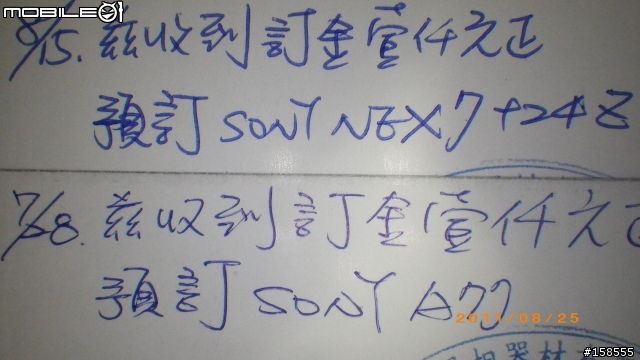 MOBILE01
8/15. 茲收到訂金壹仟元正
預訂 SONY NEX7+24Z
7/28. 茲收到訂金壹仟元正
預訂 SONY A77
2011/08/25
#158555